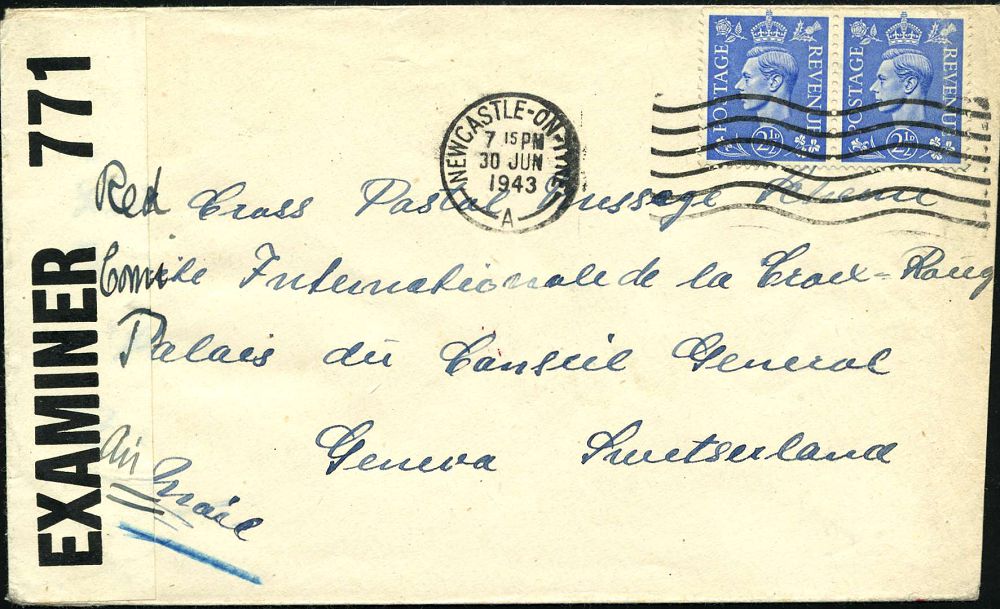 EXAMINER 771
POSTAGE REVENUE 2½D
POSTAGE REVENUE 2½D
NEWCASTLE-ON-TYNE
7 15 PM
30 JUN
1943
A
Red Cross Postal Message Scheme
Comite Internationale de la Croix-Roug
Palais du Conseil General
Geneva Switserland
Air Mail